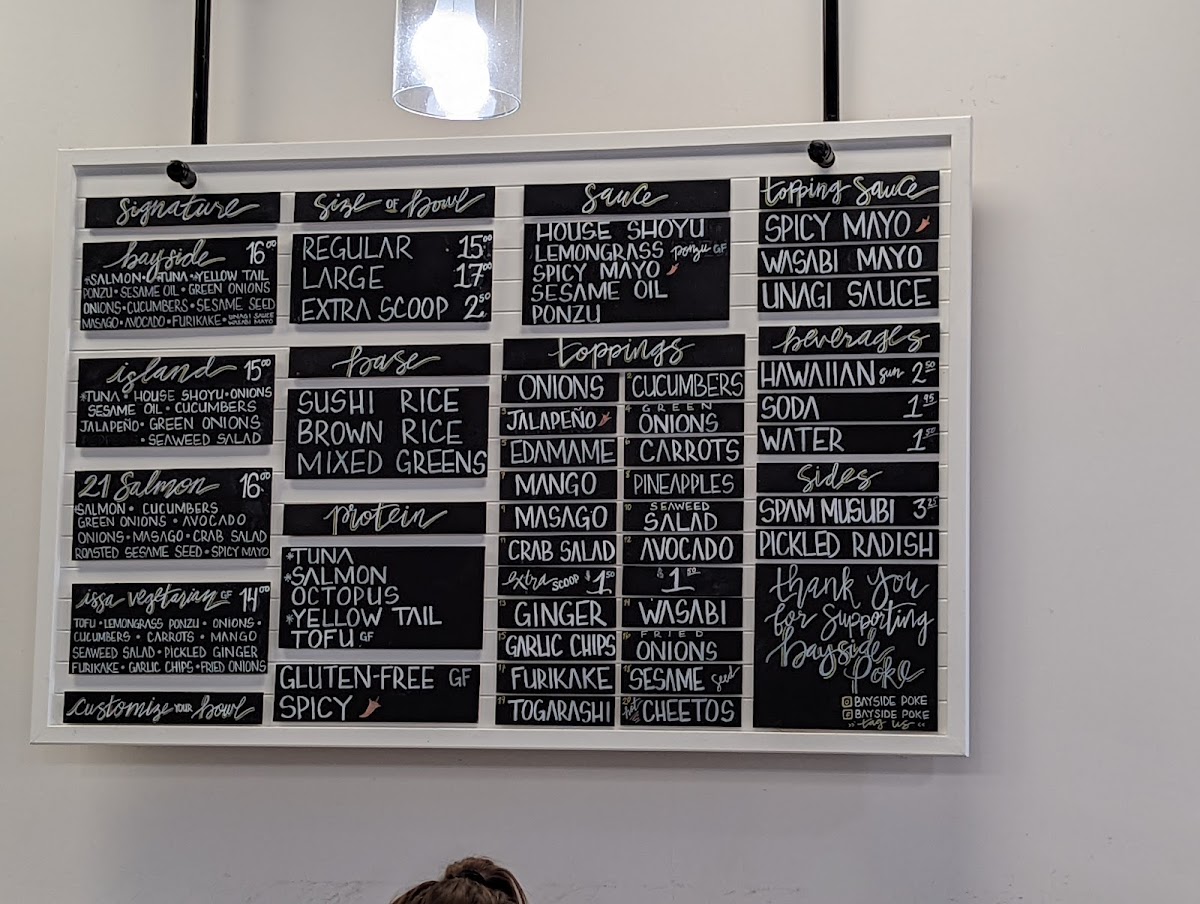 signature
bayside 16⁰⁰
*SALMON • *TUNA • *YELLOW TAIL
PONZU • SESAME OIL • GREEN ONIONS
ONIONS • CUCUMBERS • SESAME SEED
MASAGO • AVOCADO • FURIKAKE • UNAGI SAUCE
WASABI MAYO
island 15⁰⁰
*TUNA • HOUSE SHOYU • ONIONS
SESAME OIL • CUCUMBERS
JALAPEÑO • GREEN ONIONS
• SEAWEED SALAD
21 Salmon 16⁰⁰
*SALMON • CUCUMBERS
GREEN ONIONS • AVOCADO
ONIONS • MASAGO • CRAB SALAD
ROASTED SESAME SEED • SPICY MAYO
issa vegetarian GF 14⁰⁰
TOFU • LEMONGRASS PONZU • ONIONS •
CUCUMBERS • CARROTS • MANGO
SEAWEED SALAD • PICKLED GINGER
FURIKAKE • GARLIC CHIPS • FRIED ONIONS
customize YOUR bowl
size OF bowl
REGULAR 15⁰⁰
LARGE 17⁰⁰
EXTRA SCOOP 2⁵⁰
base
SUSHI RICE
BROWN RICE
MIXED GREENS
protein
*TUNA
*SALMON
OCTOPUS
*YELLOW TAIL
TOFU GF
GLUTEN-FREE GF
SPICY
sauce
HOUSE SHOYU
LEMONGRASS ponzu GF
SPICY MAYO
SESAME OIL
PONZU
toppings
1 ONIONS 2 CUCUMBERS
3 JALAPEÑO 4 GREEN ONIONS
5 EDAMAME 6 CARROTS
7 MANGO 8 PINEAPPLES
9 MASAGO 10 SEAWEED SALAD
11 CRAB SALAD 12 AVOCADO
extra SCOOP $1⁵⁰ $1⁵⁰
13 GINGER 14 WASABI
15 GARLIC CHIPS 16 FRIED ONIONS
17 FURIKAKE 18 SESAME seed
19 TOGARASHI 20 hot CHEETOS
topping sauce
SPICY MAYO
WASABI MAYO
UNAGI SAUCE
beverages
HAWAIIAN sun 2⁵⁰
SODA 1⁹⁵
WATER 1⁵⁰
sides
SPAM MUSUBI 3²⁵
PICKLED RADISH
thank you
for supporting
bayside
poke
BAYSIDE POKE
BAYSIDE POKE
tag us